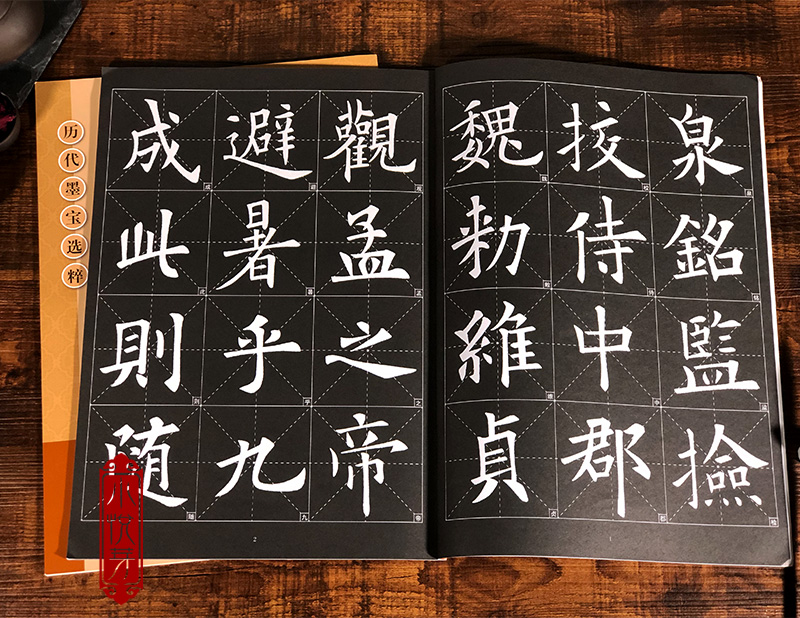 泉銘監撿
挍侍中郡
魏勑維貞
1
觀孟之帝
避暑乎九
成此則随
2
历代墨宝选粹